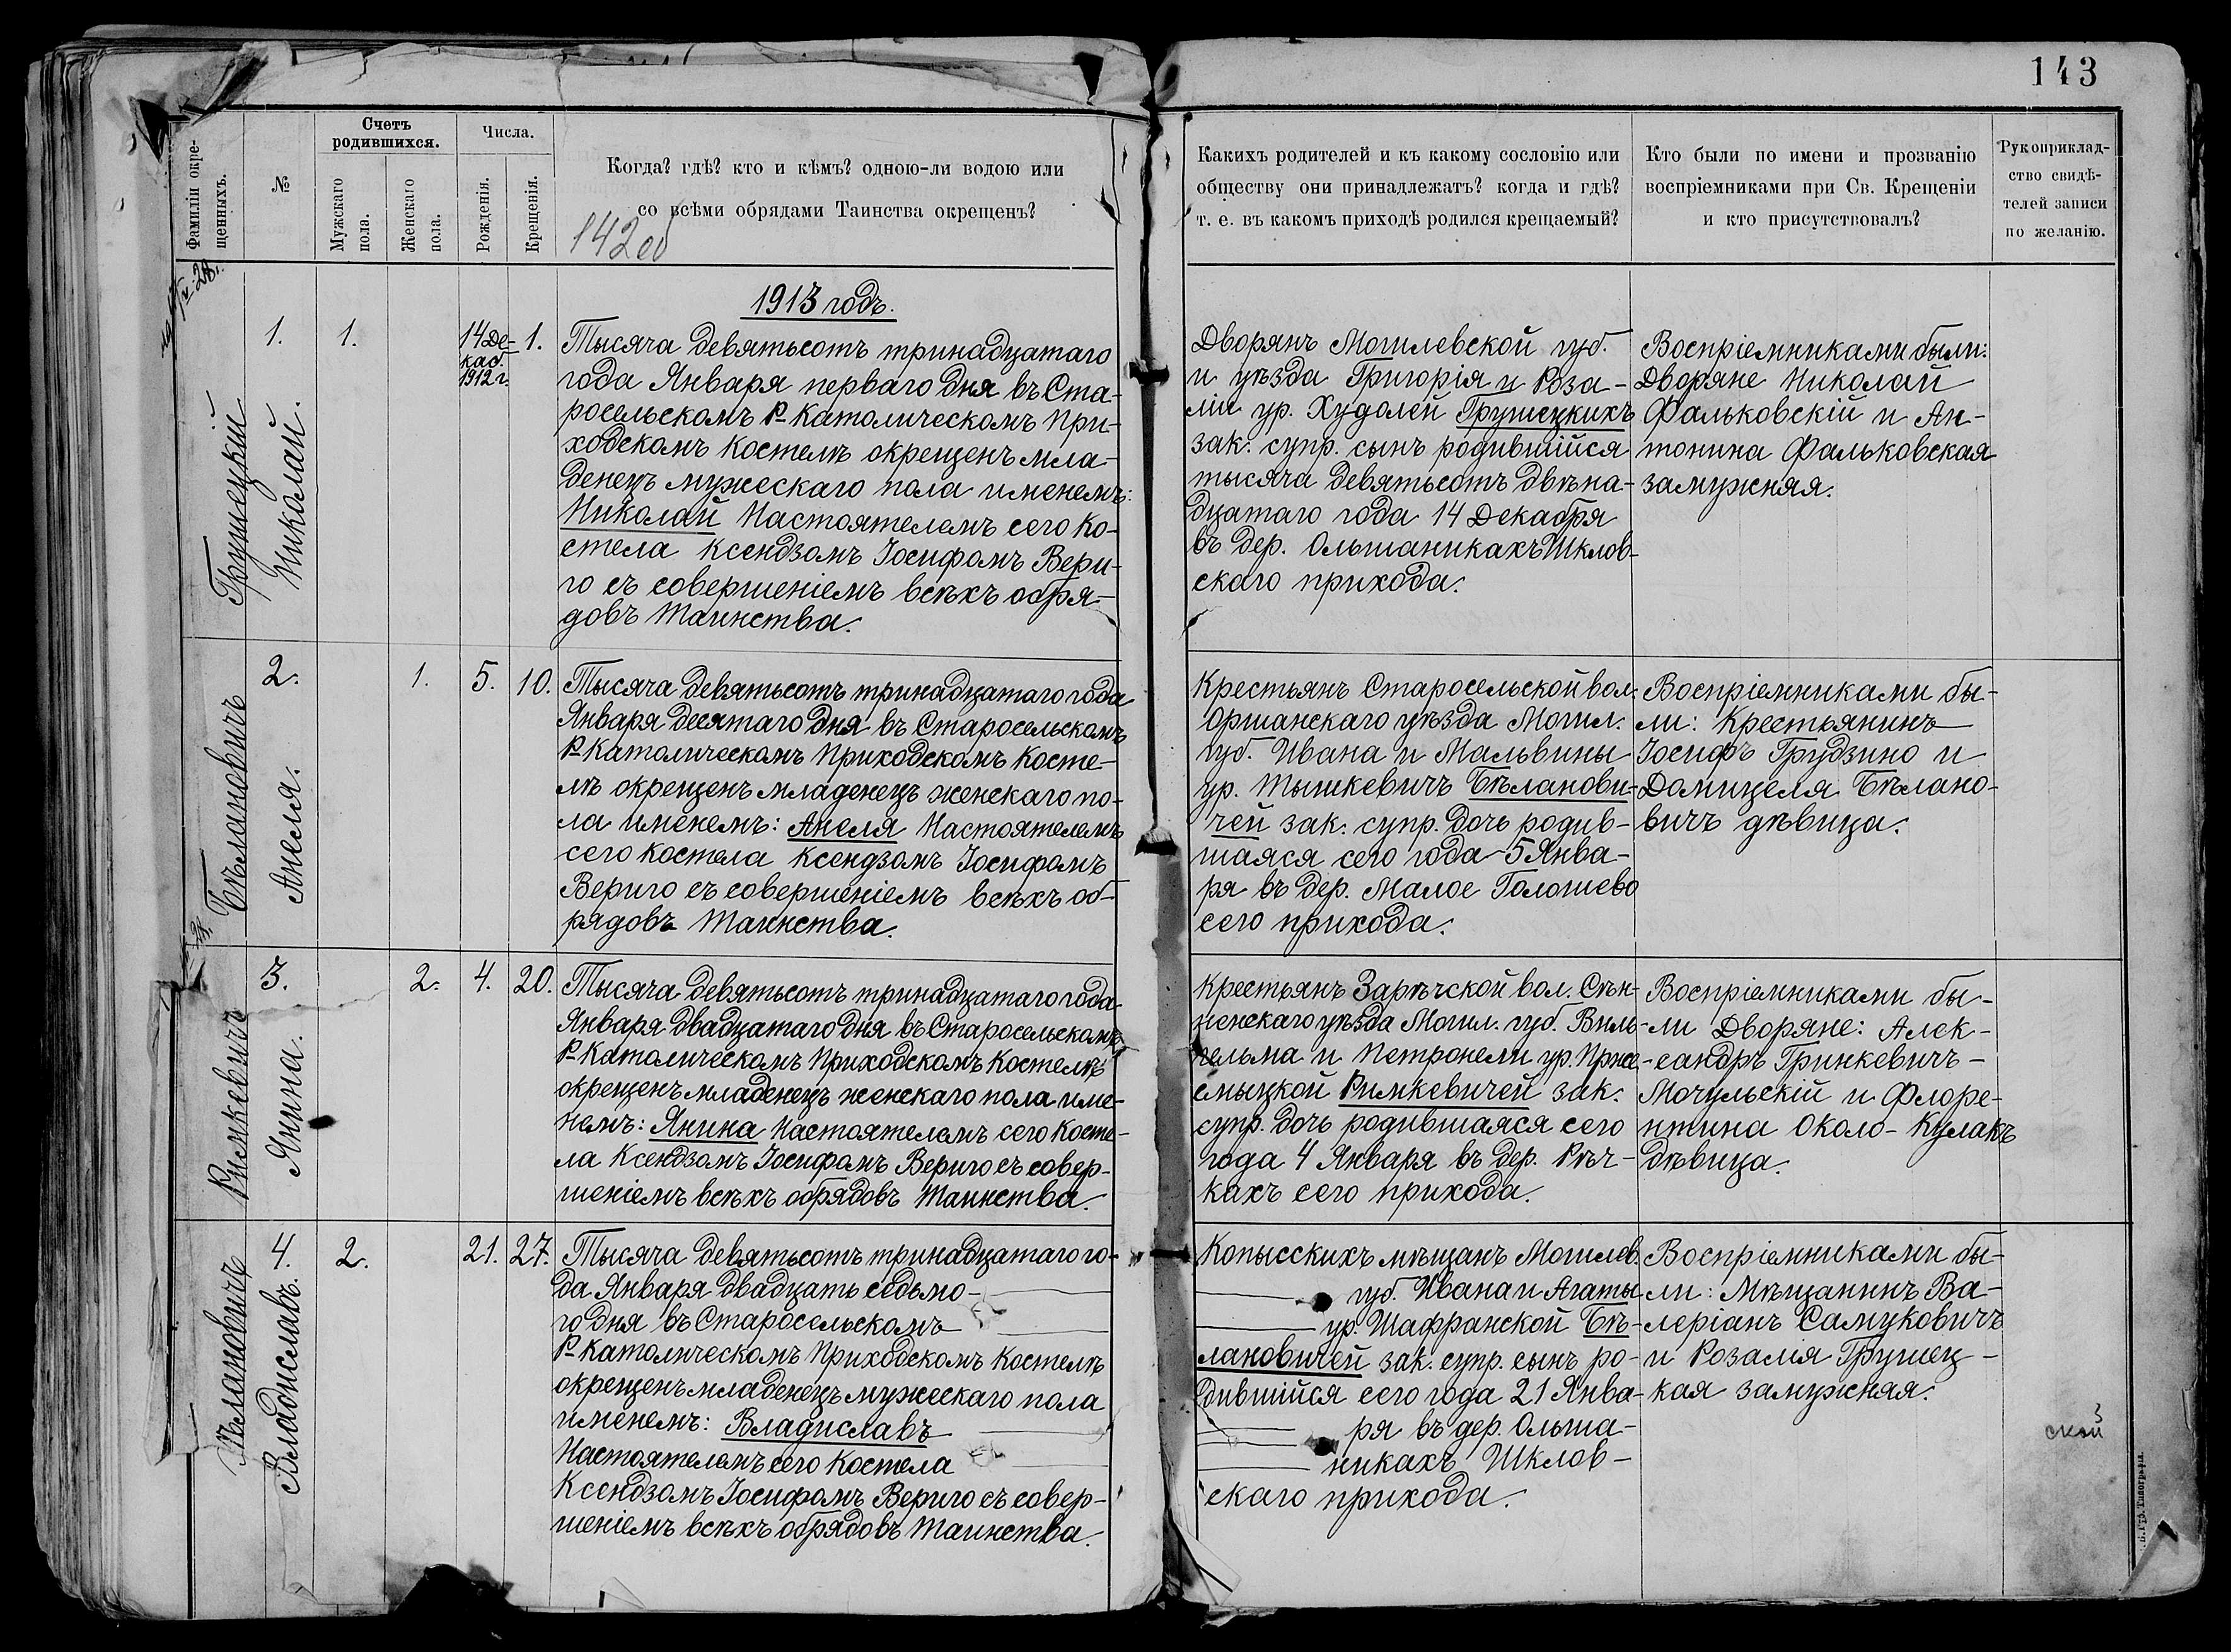 143
Фамиліи окре-
щенныхъ.
№
Счетъ
родившихся.
Мужскаго
пола.
Женскаго
пола.
Числа.
Рожденія.
Крещенія.
Когда? гдѣ? кто и кѣмъ? одною-ли водою или
со всѣми обрядами Таинства окрещенъ?
142 об
Какихъ родителей и къ какому сословію или
обществу они принадлежатъ? когда и гдѣ?
т. е. въ какомъ приходѣ родился крещаемый?
Кто были по имени и прозванію
воспріемниками при Св. Крещеніи
и кто присутствовалъ?
Рукоприклад-
ство свидѣ-
телей записи
по желанію.
1913 годъ.
Грушецкій
Николай.
1.
1.
14 Де-
каб.
1912 г.
1.
Тысяча девятьсотъ тринадцатаго
года Января перваго дня въ Ста-
росельскомъ Р-Католическомъ При-
ходскомъ костелѣ окрещенъ мла-
денецъ мужескаго пола именемъ:
Николай Настоятелемъ сего Ко-
стела Ксендзомъ Іосифомъ Вери-
го съ совершеніемъ всѣхъ обря-
довъ Таинства.
Дворянъ Могилевской губ.
и уѣзда Григорія и Роза-
ліи ур. Худолей Грушецкихъ
зак. супр. сынъ родившійся
тысяча девятьсотъ двѣна-
дцатаго года 14 Декабря
въ дер. Ольшаникахъ Шклов-
скаго прихода.
Воспріемниками были:
Дворяне Николай
Фальковскій и Ан-
тонина Фальковская
замужняя.
Бѣлановичъ
Анеля.
2.
1.
5.
10.
Тысяча девятьсотъ тринадцатаго года
Января десятаго дня въ Старосельскомъ
Р-Католическомъ Приходскомъ Косте-
лѣ окрещенъ младенецъ женскаго по-
ла именемъ: Анеля Настоятелемъ
сего Костела Ксендзомъ Іосифомъ
Вериго съ совершеніемъ всѣхъ об-
рядовъ Таинства.
Крестьянъ Старосельской вол.
Оршанскаго уѣзда Могил.
губ. Ивана и Мальвины
ур. Тышкевичъ Бѣланови-
чей зак. супр. дочь родив-
шаяся сего года 5 Янва-
ря въ дер. Малое Голошево
сего прихода.
Воспріемниками бы-
ли: Крестьянинъ
Іосифъ Грудзино и
Домицеля Бѣлано-
вичъ дѣвица.
Римкевичъ
Янина.
3.
2.
4.
20.
Тысяча девятьсотъ тринадцатаго года
Января двадцатаго дня въ Старосельскомъ
Р-Католическомъ Приходскомъ Костелѣ
окрещенъ младенецъ женскаго пола име-
немъ: Янина Настоятелемъ сего Косте-
ла Ксендзомъ Іосифомъ Вериго съ совер-
шеніемъ всѣхъ обрядовъ Таинства.
Крестьянъ Зарѣчской вол. Сѣн-
ненскаго уѣзда Могил. губ. Виль-
гельма и Петронели ур. Прже-
смыцкой Римкевичей зак.
супр. дочь родившаяся сего
года 4 Января въ дер. Рѣч-
кахъ сего прихода.
Воспріемниками бы-
ли Дворяне: Алек-
сандръ Гринкевичъ-
Мочульскій и Флоре-
нтина Около-Кулакъ
дѣвица.
Бѣлановичъ
Владиславъ.
4.
2.
21.
27.
Тысяча девятьсотъ тринадцатаго го-
да Января двадцать седьмо-
го дня въ Старосельскомъ
Р-Католическомъ Приходскомъ Костелѣ
окрещенъ младенецъ мужескаго пола
именемъ: Владиславъ
Настоятелемъ сего Костела
Ксендзомъ Іосифомъ Вериго съ совер-
шеніемъ всѣхъ обрядовъ Таинства.
Копысскихъ мѣщанъ Могилев.
губ. Ивана и Агаты
ур. Шафранской Бѣ-
лановичей зак. супр. сынъ ро-
дившійся сего года 21 Янва-
ря въ дер. Ольша-
никахъ Шклов-
скаго прихода.
Воспріемниками бы-
ли: Мѣщанинъ Ва-
леріанъ Самуковичъ
и Розалія Грушец-
кая замужняя.